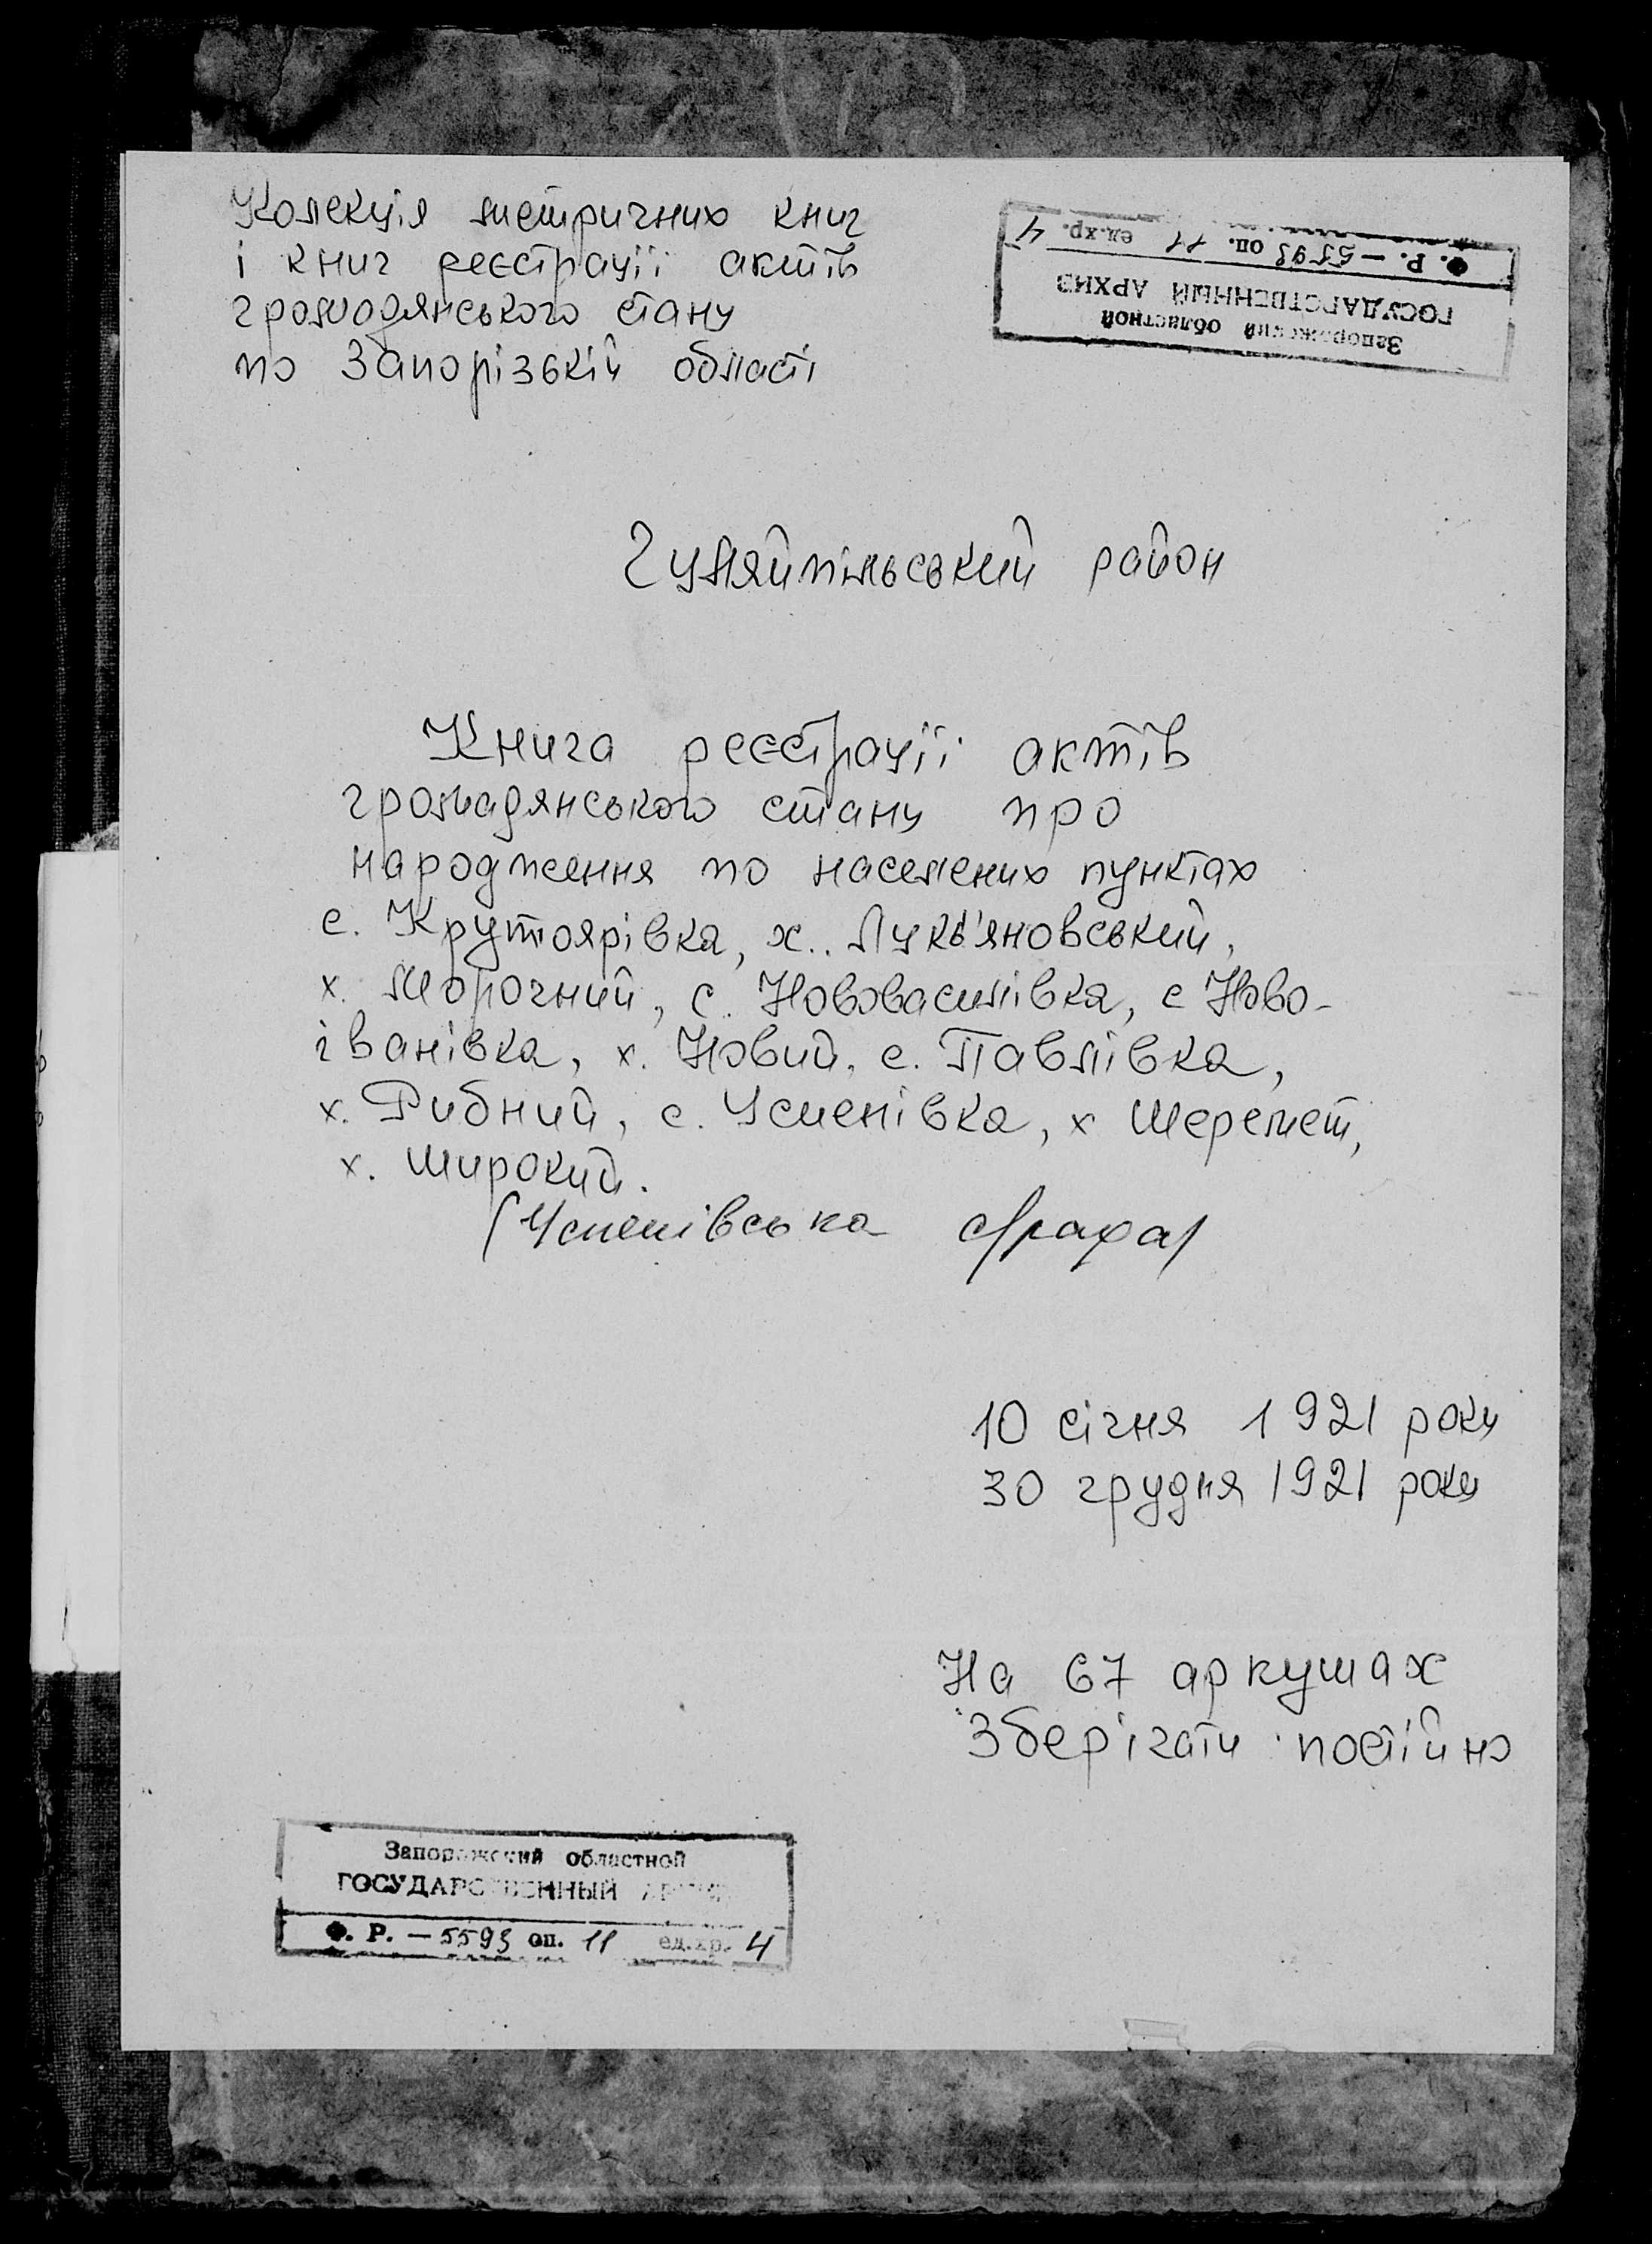 Колекція метричних книг
і книг реєстрації актів
громадянського стану
по Запорізькій області
Запорожский областной
ГОСУДАРСТВЕННЫЙ АРХИВ
Ф. Р. — 5593 оп. 11 ед.хр. 4
Гуляйпільський район
Книга реєстрації актів
громадянського стану про
народження по населених пунктах
с. Крутоярівка, х. Лук'яновський,
х. Морочний, с. Нововасилівка, с Ново-
іванівка, х. Новий, с. Павлівка,
х. Рибний, с. Успенівка, х Шеремет,
х. Широкий.
(Успенівська
10 січня 1921 року
30 грудня 1921 року
На 67 аркушах
Зберігати постійно
Запорожский областной
ГОСУДАРСТВЕННЫЙ АРХИВ
Ф. Р. — 5593 оп. 11 ед.хр. 4